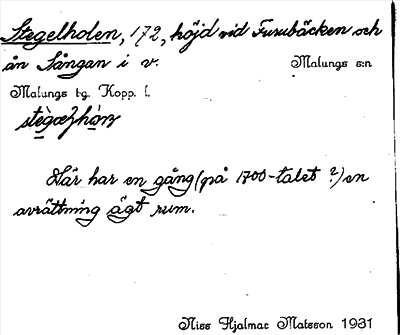 Stegelholen, 172, höjd vid Furubäcken och
ån Sångan i v. Malungs s:n
Malungs tg. Kopp. l.
Här har en gång (på 1700-talet?) en
avrättning ägt rum.
Niss Hjalmar Matsson 1931